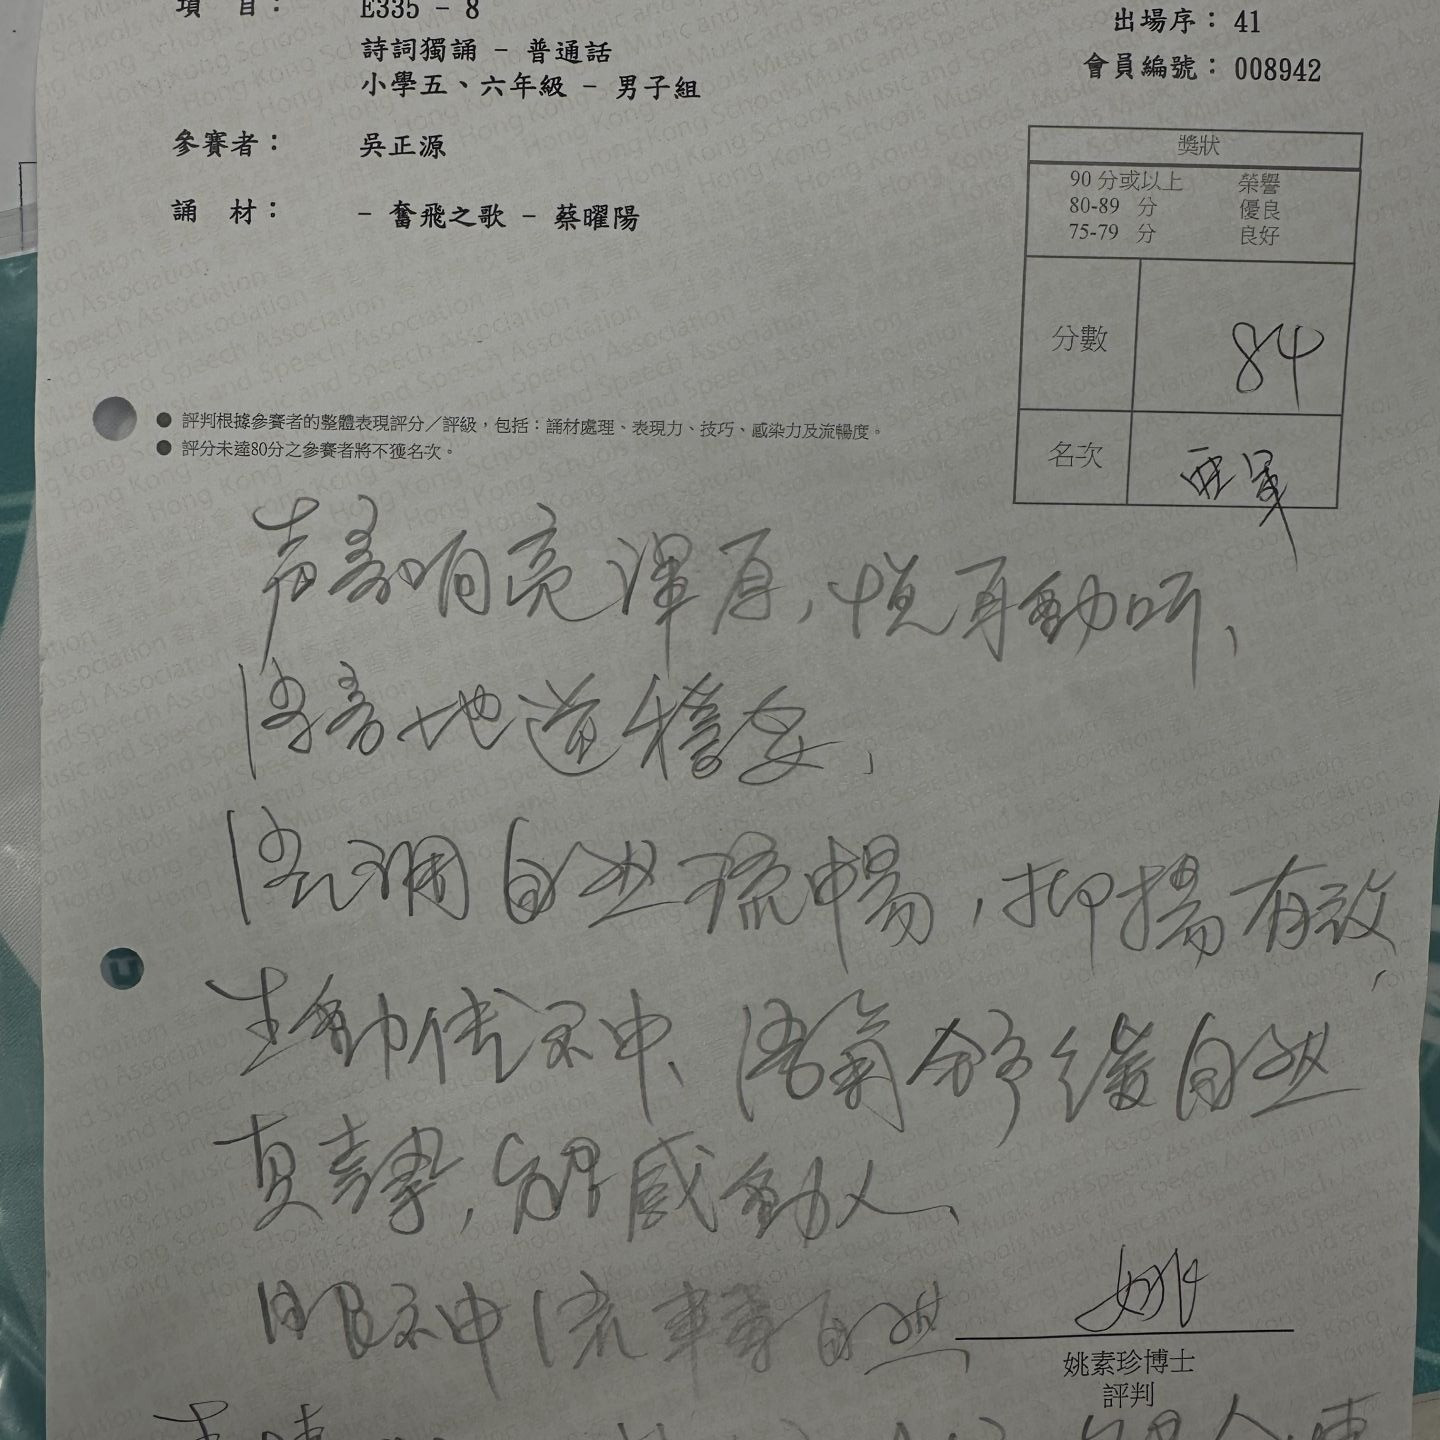 項 目： E335 - 8
出場序： 41
詩詞獨誦 - 普通話
會員編號： 008942
小學五、六年級 - 男子組
參賽者： 吳正源
誦 材： - 奮飛之歌 - 蔡曜陽
獎狀
90 分或以上 榮譽
80-89 分 優良
75-79 分 良好
分數 84
名次 亞軍
● 評判根據參賽者的整體表現評分／評級，包括：誦材處理、表現力、技巧、感染力及流暢度。
● 評分未達80分之參賽者將不獲名次。
声音响亮渾厚，悅耳動听、
语音地道穩妥、
语调自然流暢，抑揚有效、
生動传神、语氣舒缓自然
真摯，能感動人、
眼神流轉自然
姚素珍博士
評判